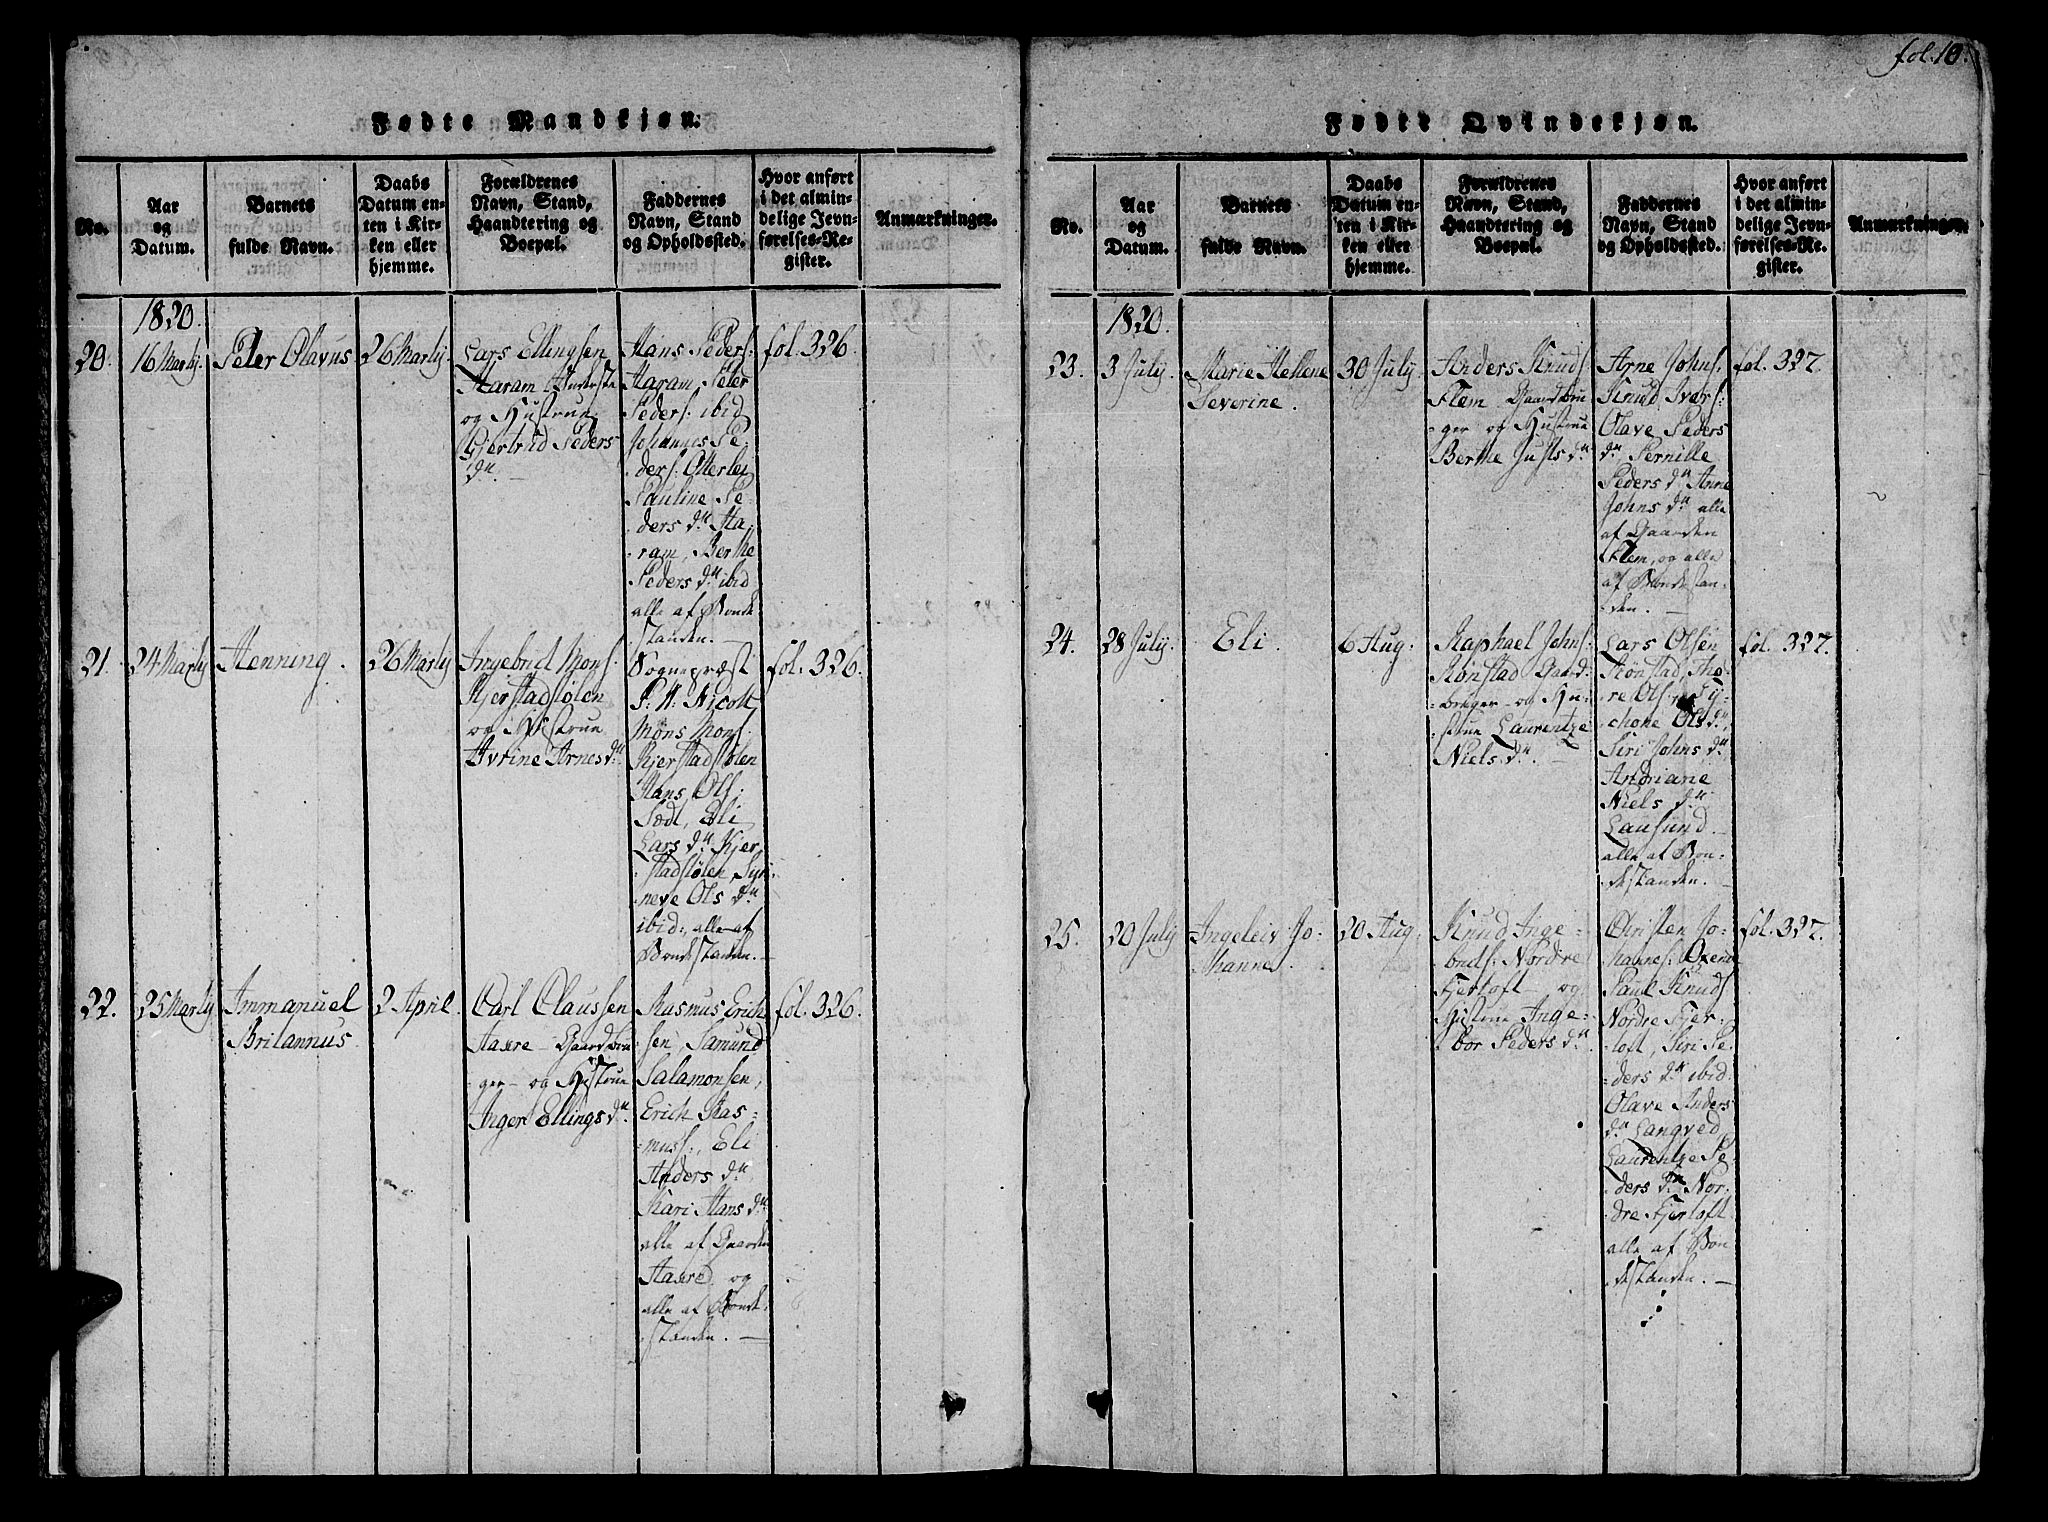 Fødte Mandkjøn.
No.
Aar
og
Datum.
Barnets
fulde Navn.
Daabs
Datum en-
ten i Kir-
ken eller
hjemme.
Forældrenes
Navn, Stand,
Haandtering og
Boepæl.
Faddernes
Navn, Stand
og Opholdssted.
Hvor anført
i det almin-
delige Jevn-
førelses-Re-
gister.
Anmærkninger.
1820.
20.
16 Martij.
Peter Olavus
26 Martij.
Lars Ellingsen
Haram
og Hustrue
Gjertrud Peders
dtr.
Hans Peders:
Haram, Peder
Peders: ibid
Johannes Pe-
ders: Otterlei
Pauline Pe-
ders dtr Ha-
ram, Berthe
Peders dtr ibid
alle af Bonde
standen.
fol. 326
21.
24 Martij
Henning.
26 Martij
Ingebrict Mons:
Kjerstadsølen
og Hustrue
Avrine Arnes dtr.
Sognepræst
P. H: Nicoll
Mons Mons:
Kjerstadslølen
Hans Ols:
Sædt, Eli
Lars dtr Kjer-
stadslølen, Syn-
neve Ols dtr
ibid:, alle af
Bondestanden.
fol. 326.
22.
25 Martij
Immanuel
Britannus.
2 April.
Carl Claussen
Aasere Gaardbru-
ger og Hustrue
Inger Ellings dtr.
Rasmus Erich
sen, Samund
Salamonsen,
Erich Ras-
muss:, Eli
Anders dtr
Kari Hans dtr
alle af Gaarden
Aasere, og
alle af Bonde-
standen.
fol. 326.
fol. 10.
Fødte Qvindekjøn.
No.
Aar
og
Datum.
Barnets
fulde Navn.
Daabs
Datum en-
ten i Kir-
ken eller
hjemme.
Forældrenes
Navn, Stand,
Haandtering og
Boepæl.
Faddernes
Navn, Stand
og Opholdssted.
Hvor anført
i det almin-
delige Jevn-
førelses-Re-
gister.
Anmærkninger.
1820.
23.
3 July.
Marie Hellene
Severine.
30 July
Anders Knuds:
Flem Gaardbru
ger og Hustrue
Berthe Justs dtr
Arne Johns:
Knud Ivers:
Olave Peders
dtr Pernille
Peders dtr Anne
Johns dtr alle
af Gaarden
Flem, og alle
af Bondestan-
den.
fol. 327.
24.
28 July.
Eli.
6 Aug:
Raphael Johns:
Rønstad Gaard-
bruger og Hu-
strue Laurentze
Niels dtr.
Lars Olsen
Rønstad, Tho-
re Ols: Ty-
chone Ols dtr,
Siri Johns dtr
Andriane
Niels dtr
Lausund
alle af Bon-
destanden.
fol. 327.
25.
20 July
Ingeleiv Jo-
hanne.
20 Aug:
Knud Inge-
brids: Nordre
Fjertoft og
Hustrue Inge-
bor Peders dtr
Christen Jo-
hannes: Oxene
Paul Knuds
Nordre Fjer-
toft, Siri Pe-
ders dtr ibid.
Olave Anders
dtr Langved,
Laurentze Pe-
ders dtr Nor-
dre Fjertoft
alle af Bon
destanden.
fol. 327.